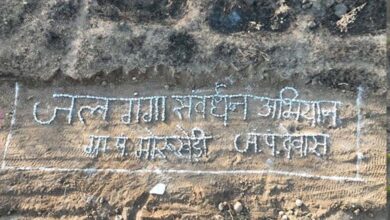 जल गंगा संवर्धन अभियान
ग्रा.पं. भोरूखेडी ज.पं.देवास